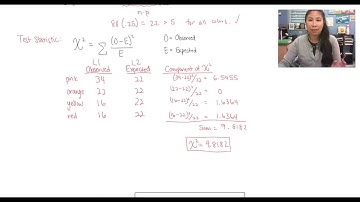 n·p
88(.25) = 22 > 5 for all colors. ✓
Test Statistic: χ² = Σ (O-E)²/E
O = Observed
E = Expected
L1 L2
Observed Expected Component of χ²
pink 34 22 (34-22)²/22 = 6.5455
orange 22 22 (22-22)²/22 = 0
yellow 16 22 (16-22)²/22 = 1.6364
red 16 22 (16-22)²/22 = 1.6364
Sum = 9.8182
χ² = 9.8182